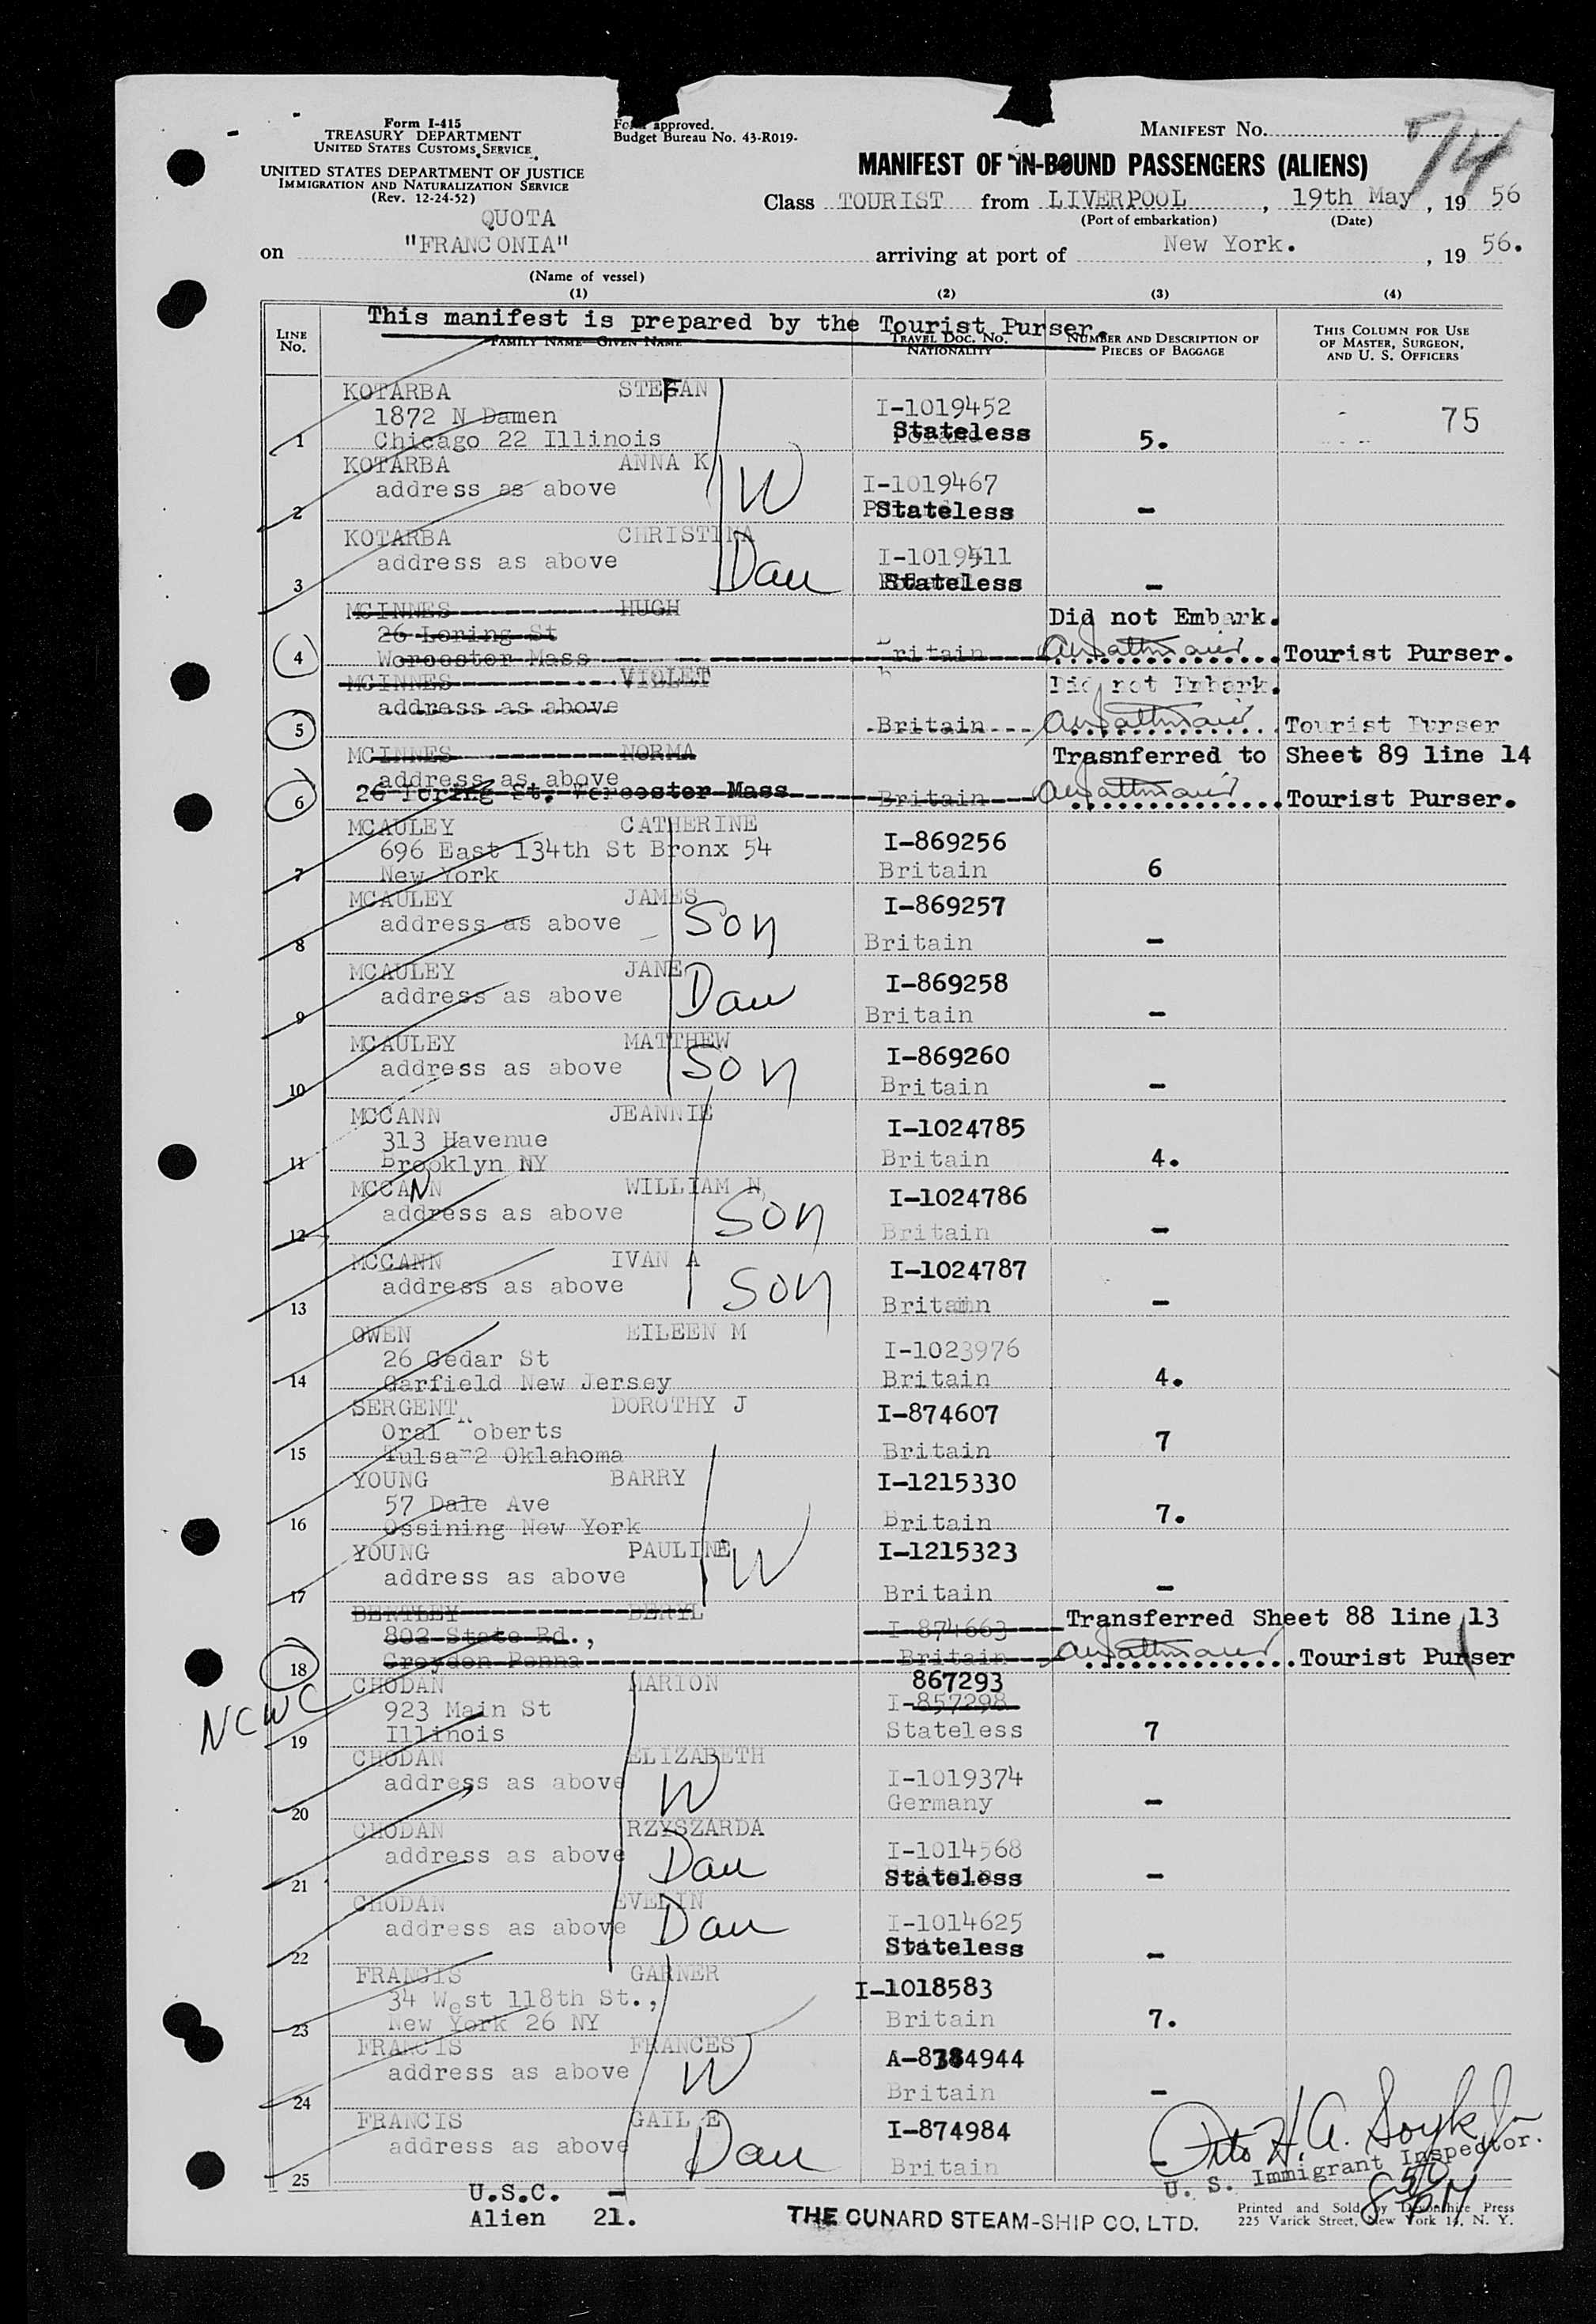 Form I-415
TREASURY DEPARTMENT
UNITED STATES CUSTOMS SERVICE
UNITED STATES DEPARTMENT OF JUSTICE
IMMIGRATION AND NATURALIZATION SERVICE
(Rev. 12-24-52)
Form approved.
Budget Bureau No. 43-R019-
MANIFEST No.
74
MANIFEST OF IN-BOUND PASSENGERS (ALIENS)
Class TOURIST from LIVERPOOL, 19th May, 19 56
(Port of embarkation) (Date)
QUOTA
on "FRANCONIA" arriving at port of New York. , 19 56.
(Name of vessel)
(1) (2) (3) (4)
This manifest is prepared by the Tourist Purser.
LINE No. FAMILY NAME—GIVEN NAME TRAVEL DOC. No. NATIONALITY NUMBER AND DESCRIPTION OF PIECES OF BAGGAGE THIS COLUMN FOR USE OF MASTER, SURGEON, AND U. S. OFFICERS
KOTARBA STEFAN
1872 N Damen I-1019452 75
1 Chicago 22 Illinois Stateless 5.
KOTARBA ANNA K W
address as above I-1019467
2 Stateless -
KOTARBA CHRISTINA
address as above Dau I-1019411
3 Stateless -
MCINNES HUGH Did not Embark.
26 Loring St
4 Worcester Mass Britain Tourist Purser.
MCINNES VIOLET Did not Embark.
address as above
5 Britain Tourist Purser
MCINNES NORMA Trasnferred to Sheet 89 line 14
address as above
6 26 Loring St. Worcester Mass Britain Tourist Purser.
MCAULEY CATHERINE
696 East 134th St Bronx 54 I-869256
7 New York Britain 6
MCAULEY JAMES I-869257
address as above Son
8 Britain -
MCAULEY JANE I-869258
address as above Dau
9 Britain -
MCAULEY MATTHEW I-869260
address as above Son
10 Britain -
MCCANN JEANNIE I-1024785
313 Havenue
11 Brooklyn NY Britain 4.
MCCANN WILLIAM N I-1024786
address as above Son
12 Britain -
MCCANN IVAN A I-1024787
address as above Son
13 Britain -
OWEN EILEEN M
26 Cedar St I-1023976
14 Garfield New Jersey Britain 4.
SERGENT DOROTHY J I-874607
Oral Roberts
15 Tulsa 2 Oklahoma Britain 7
YOUNG BARRY I-1215330
57 Dale Ave
16 Ossining New York Britain 7.
YOUNG PAULINE W I-1215323
address as above
17 Britain -
BENTLEY BERYL Transferred Sheet 88 line 13
802 State Rd., I-874663
18 Croydon Penna Britain Tourist Purser
NCWC
CHODAN MARION 867293
923 Main St I-857298
19 Illinois Stateless 7
CHODAN ELIZABETH
address as above W I-1019374
20 Germany -
CHODAN RZYSZARDA
address as above Dau I-1014568
21 Stateless -
CHODAN EVELIN
address as above Dau I-1014625
22 Stateless -
FRANCIS GARNER I-1018583
34 West 118th St.,
23 New York 26 NY Britain 7.
FRANCIS FRANCES
address as above W A-8384944
24 Britain -
FRANCIS GAIL E I-874984
address as above Dau
25 Britain -
Otto H.A. Soyk Jr
U. S. Immigrant Inspector.
U.S.C. -
Alien 21.
THE CUNARD STEAM-SHIP CO. LTD.
Printed and Sold by Devonshire Press
225 Varick Street, New York 14, N. Y.